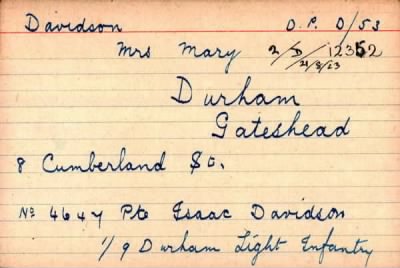 Davidson O.P. D/53
Mrs Mary 2/D/12352
21/8/23
Durham
Gateshead
8 Cumberland St.
No 4647 Pte Isaac Davidson
1/9 Durham Light Infantry